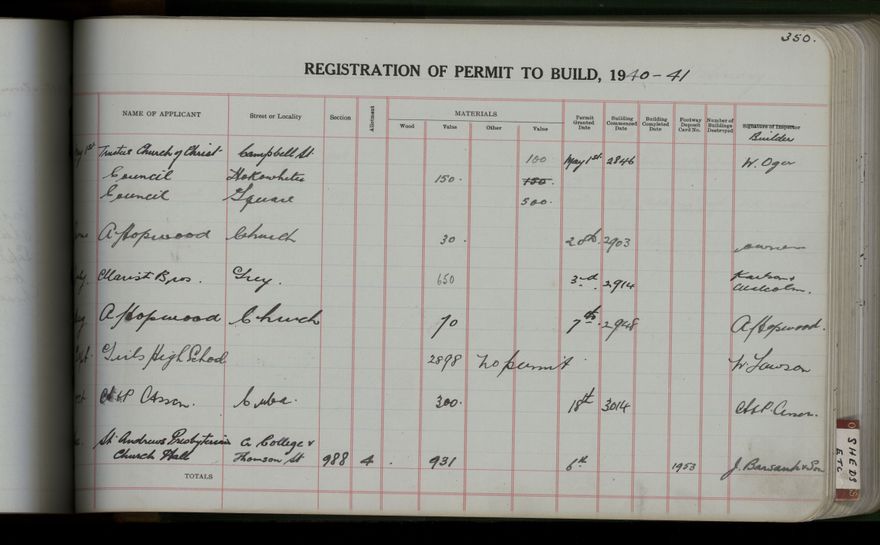 350.
REGISTRATION OF PERMIT TO BUILD, 1940-41
NAME OF APPLICANT Street or Locality Section Allotment MATERIALS Permit Granted Date Building Commenced Date Building Completed Date Footway Deposit Card No. Number of Buildings Destroyed Signature of Inspector
Wood Value Other Value Builder
1st Trustees Church of Christ Campbell St 100 May 1st 2846 W. Oger
Council Hokowhitu 150. 150.
Council Square 500.
A Hopwood Church 30. 28th 2903 owner
Marist Bros. Grey. 650 3rd 2914 Karlson &
Malcolm.
A Hopwood Church 70 7th 2948 A Hopwood.
Girls High School 2898 No permit W. Lawson
Cuba. 300. 18th 3014
St Andrews Presbyterian Cr College &
Church Hall Thomson St 988 4 931 6th 1953 & Son
TOTALS
SHEDS
ETC